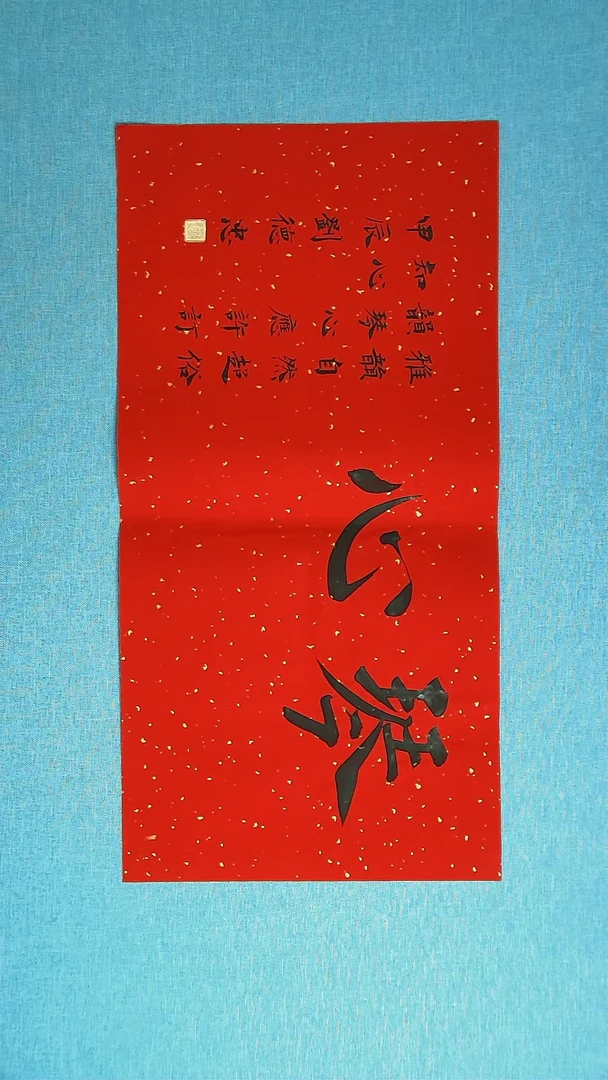 琴心
雅韻自然超俗
韻琴心應許訂
知心
甲辰劉德忠